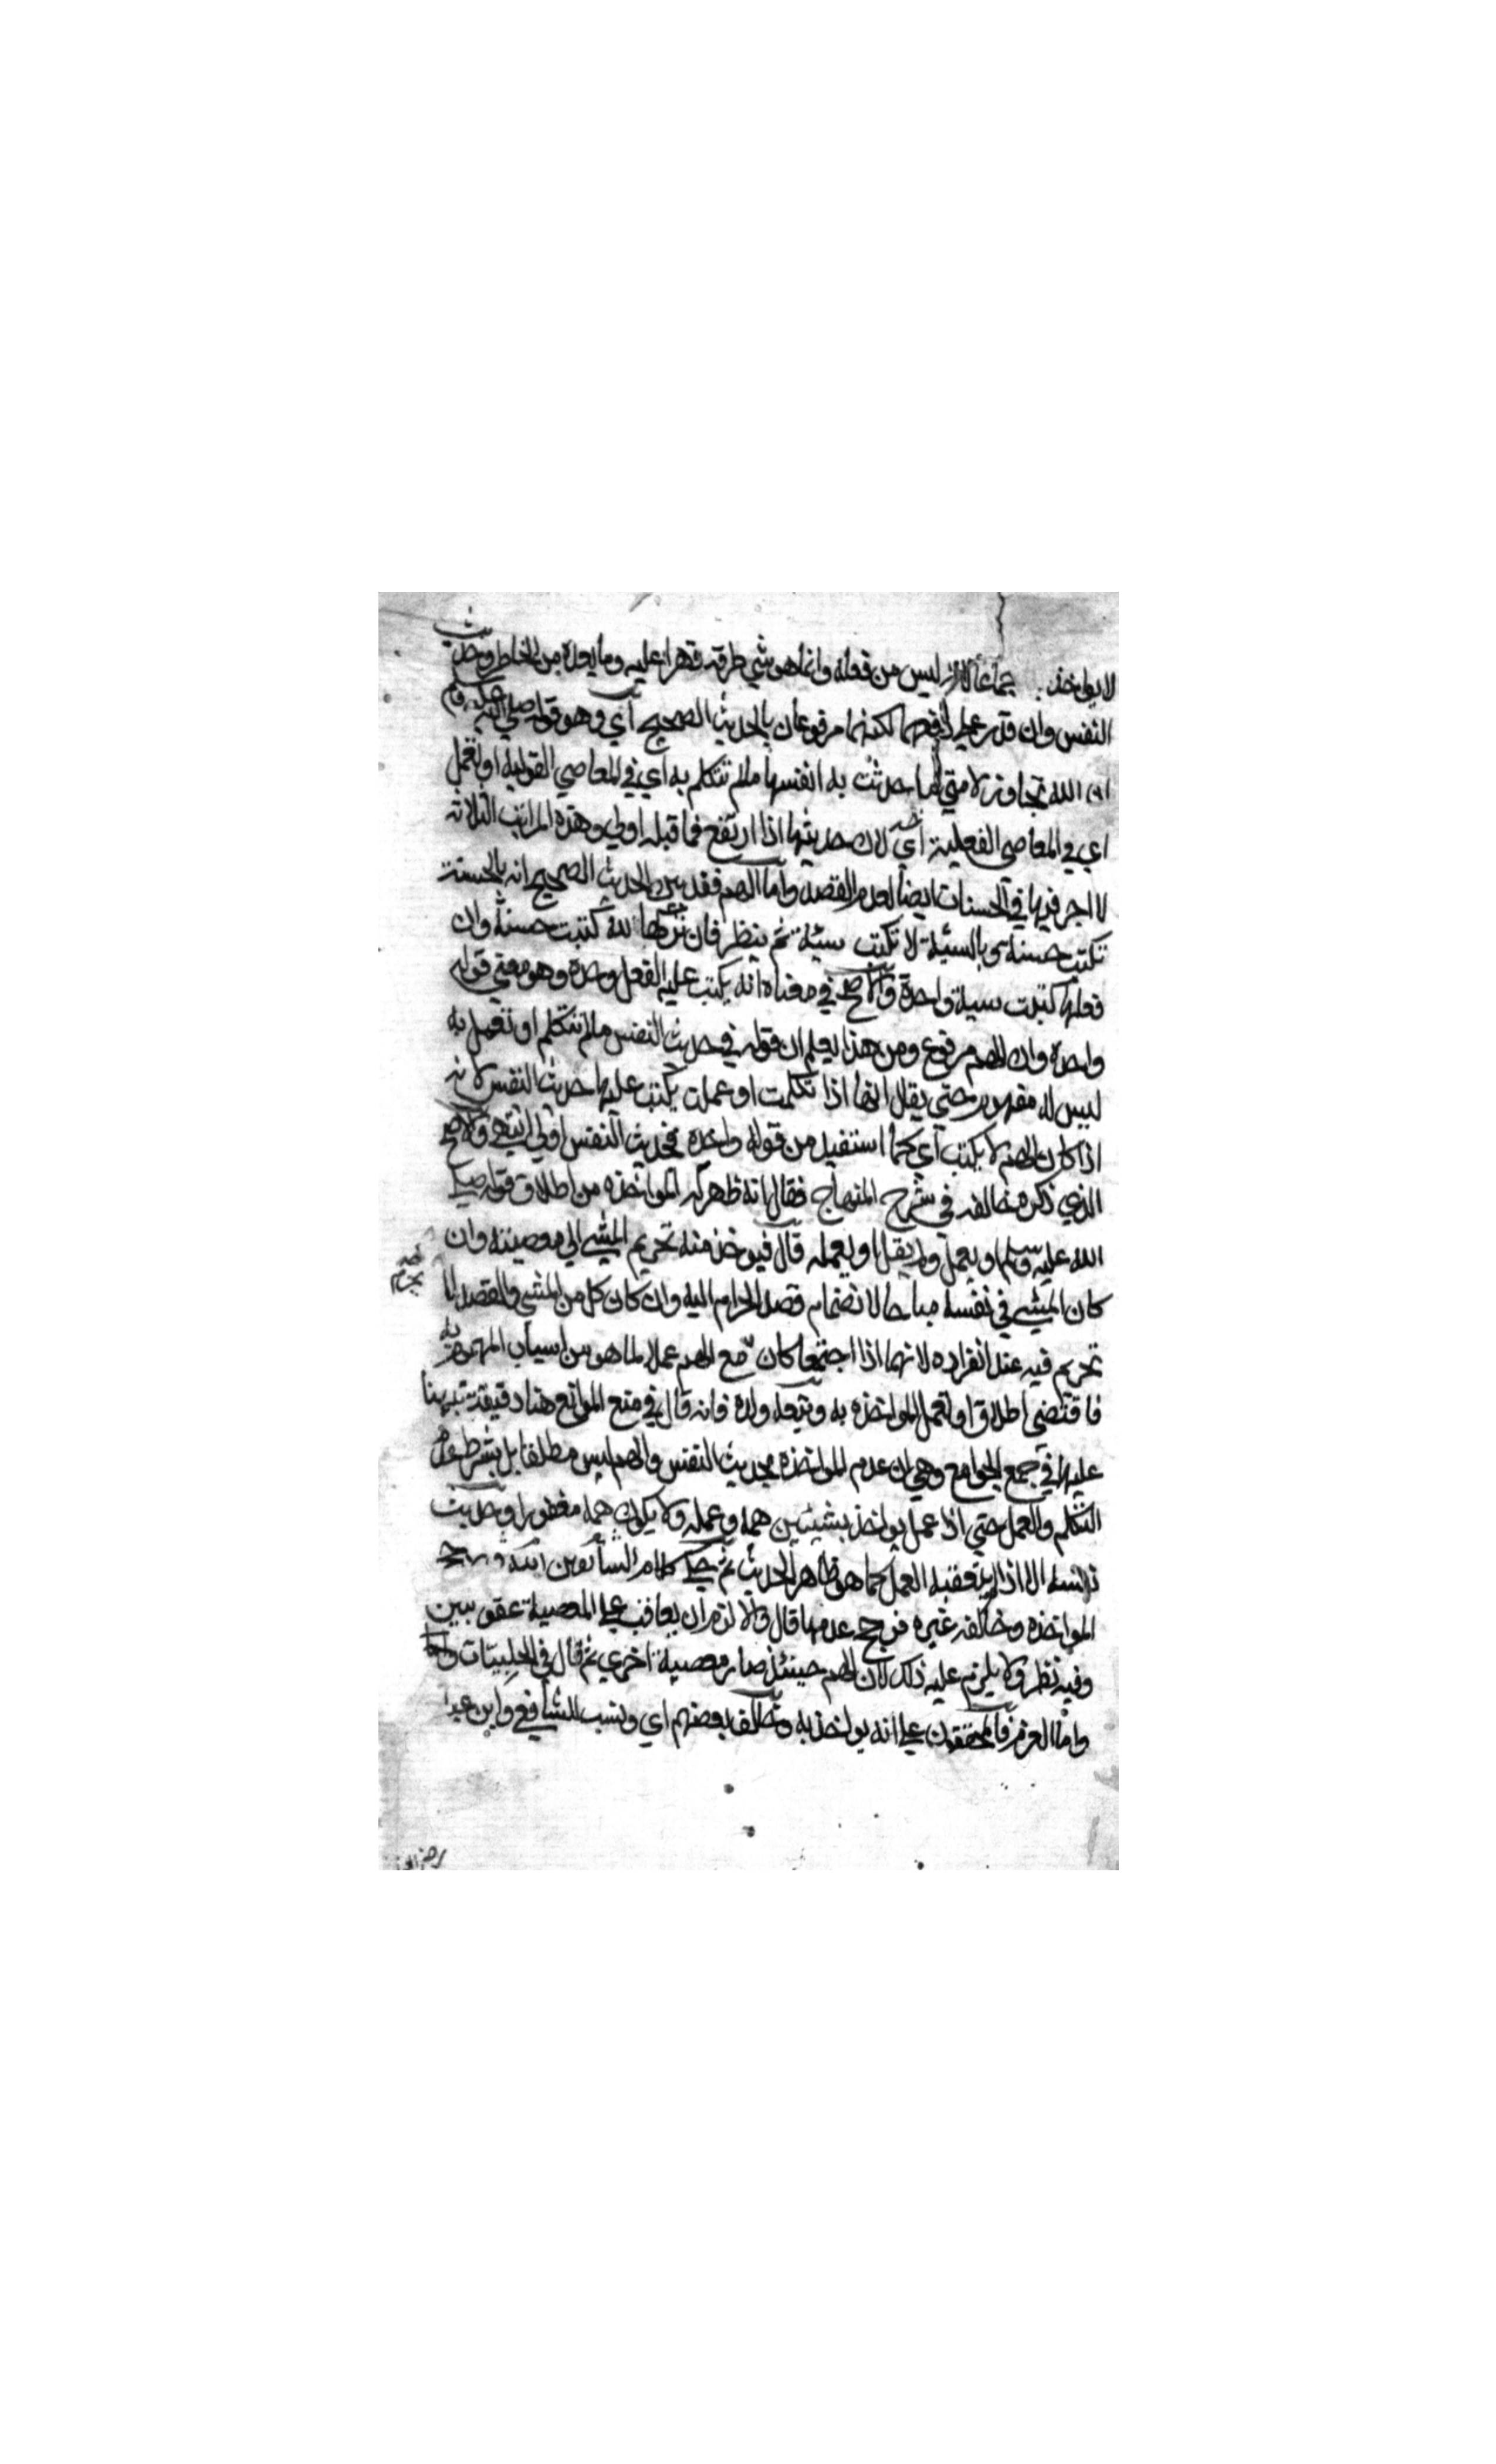 لا يواخذ به اجماعا لانه ليس من فعله وانما هو شي طرقه قهرا عليه وما بعده من الخاطر وحديث
النفس وان قدر علي دفعهما لكنهما مرفوعان بالحديث الصحيح اي وهو قوله صلي الله عليه وسلم
ان الله تجاوز لامتي ما حدثت به انفسها ما لم تتكلم به اي في المعاصي القولية او تعمل
اي في المعاصي الفعلية اي لان حديثها اذا ارتفع فما قبله اولي وهذه المراتب الثلاثة
لا اجر فيها في الحسنات ايضا لعدم القصد واما الهم فقد بين الحديث الصحيح انه بالحسنة
تكتب حسنة وبالسيئة لا تكتب سيئة ثم ينظر فان تركها لله كتبت حسنة وان
فعلها كتبت سيئة واحدة والاصح في معناه انه يكتب عليه الفعل وحده وهو معني قوله
واحدة وان الهم مرفوع ومن هذا يعلم ان قوله في حديث النفس ما لم تتكلم او تعمل به
ليس له مفهوم حتي يقال انها اذا تكلمت او عملت يكتب عليها حديث النفس لانه
اذا كان الهم لا يكتب اي كما استفيد من قوله واحدة فحديث النفس اولي انتهي والاصح
الذي ذكره خالفه في شرح المنهاج فقال انه ظهر له المواخذه من اطلاق قوله صلي
الله عليه وسلم او يعمل ولم يقل او يعمله قال فيوخذ منه تحريم المشي الي معصيته وان
كان المشي في نفسه مباحا لانضمام قصد الحرام اليه وان كان كل من المشي والقصد لا
تحريم فيه عند انفراده لانهما اذا اجتمعا كان مع الهم عملا لما هو من اسباب المهموم به
فاقتضي اطلاق او تعمل المواخذه به وتبعه ولده فانه قال في منع الموانع هنا دقيقة نبهنا
عليها في جمع الجوامع وهي ان عدم المواخذه بحديث النفس والهم ليس مطلقا بل بشرط عدم
التكلم والعمل حتي اذا عمل يواخذ بشيئين همه وعمله ولا يكون همه مغفورا وحديث
نفسه الا اذا لم يتعقبه العمل كما هو ظاهر الحديث ثم حكي كلام
المواخذه وخالفه غيره فرجح عدمها قال والا لزم ان يعاقب علي المعصية عقوبتين
وفيه نظر ولا يلزم عليه ذلك لان الهم حينئذ صار معصية اخري ثم قال في الحلبيات
واما العزم فالمحققون علي انه يواخذ به وخالف بعضهم اي ونسب للشافعي وابن عبا